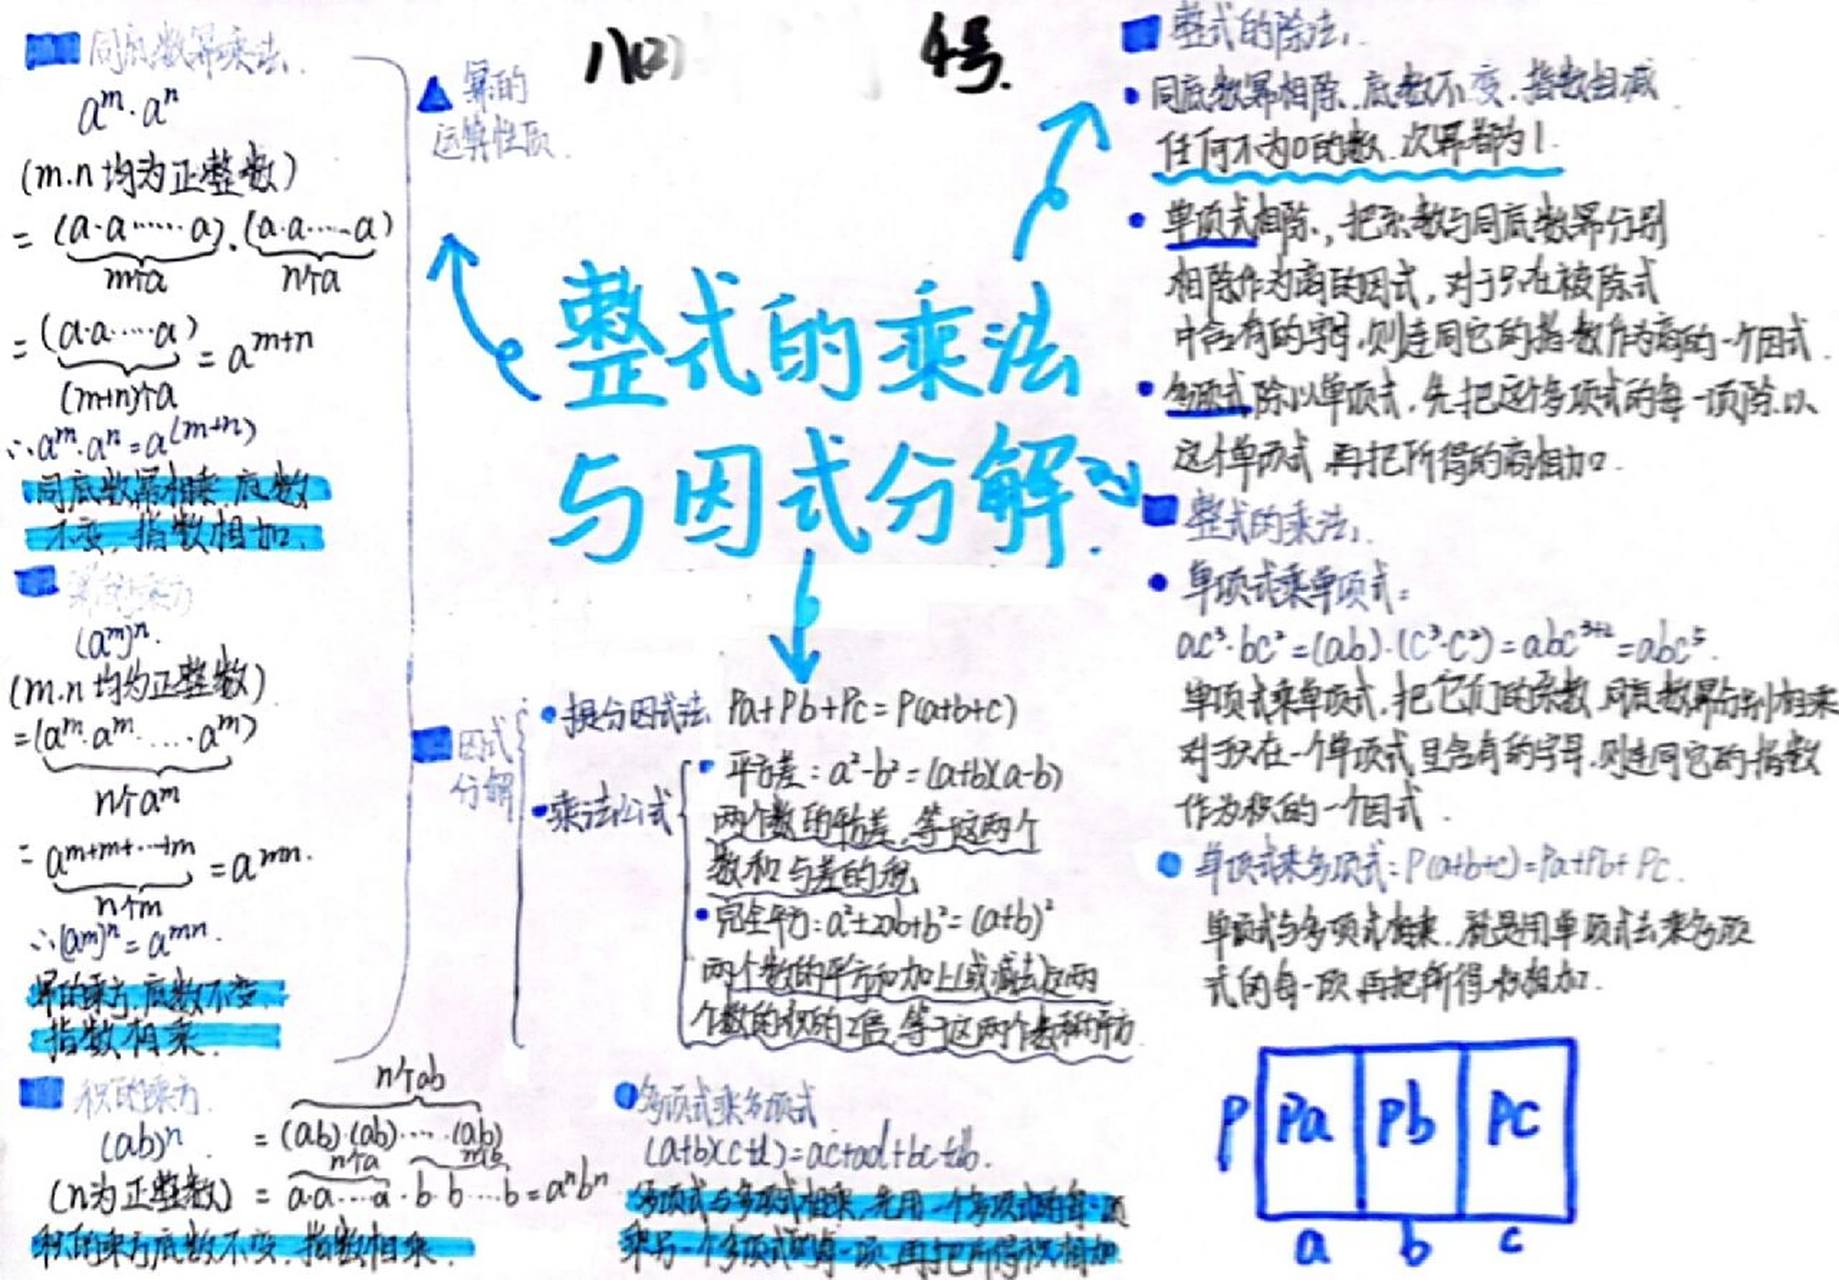 八(2) 4号.
整式的乘法
与因式分解.
▲幂的
运算性质.
同底数幂乘法.
aᵐ·aⁿ
(m.n均为正整数)
= (a·a……a)·(a·a……a)
m个a n个a
= (a·a……a) = aᵐ⁺ⁿ
(m+n)个a
∴aᵐ·aⁿ=a⁽ᵐ⁺ⁿ⁾
同底数幂相乘,底数
不变,指数相加.
幂的乘方
(aᵐ)ⁿ.
(m.n均为正整数)
=(aᵐ·aᵐ·…·aᵐ)
n个aᵐ
= aᵐ⁺ᵐ⁺…⁺ᵐ = aᵐⁿ.
n个m
∴(aᵐ)ⁿ=aᵐⁿ.
幂的乘方,底数不变
指数相乘.
积的乘方.
n个ab
(ab)ⁿ = (ab)·(ab)……(ab)
n个a n个b
(n为正整数) = a·a…·a·b·b…·b=aⁿbⁿ
积的乘方底数不变.指数相乘.
因式
分解
•提公因式法 Pa+Pb+Pc=P(a+b+c)
•乘法公式
•平方差:a²-b²=(a+b)(a-b)
两个数的平方差,等于这两个
数和与差的积
•完全平方:a²±2ab+b²=(a±b)²
两个数的平方和加上(或减去)这两
个数的积的2倍,等于这两个数和的平方
•多项式乘多项式
(a+b)(c+d)=ac+ad+bc+db.
多项式与多项式相乘,先用一个多项式的每一项
乘另一个多项式的每一项,再把所得积相加
整式的除法.
•同底数幂相除,底数不变,指数相减
任何不为0的数.次幂都为1.
•单项式相除,把系数与同底数幂分别
相除作为商的因式,对于只在被除式
中含有的字母,则连同它的指数作为商的一个因式.
•多项式除以单项式,先把这个多项式的每一项除以
这个单项式,再把所得的商相加.
整式的乘法.
•单项式乘单项式:
ac³·bc²=(ab)·(c³·c²)=abc³⁺²=abc⁵.
单项式乘单项式,把它们的系数,同底数幂分别相乘
对于只在一个单项式里含有的字母,则连同它的指数
作为积的一个因式.
•单项式乘多项式:P(a+b+c)=Pa+Pb+Pc.
单项式与多项式相乘,就是用单项式去乘多项
式的每一项,再把所得积相加.
P Pa Pb PC
a b c